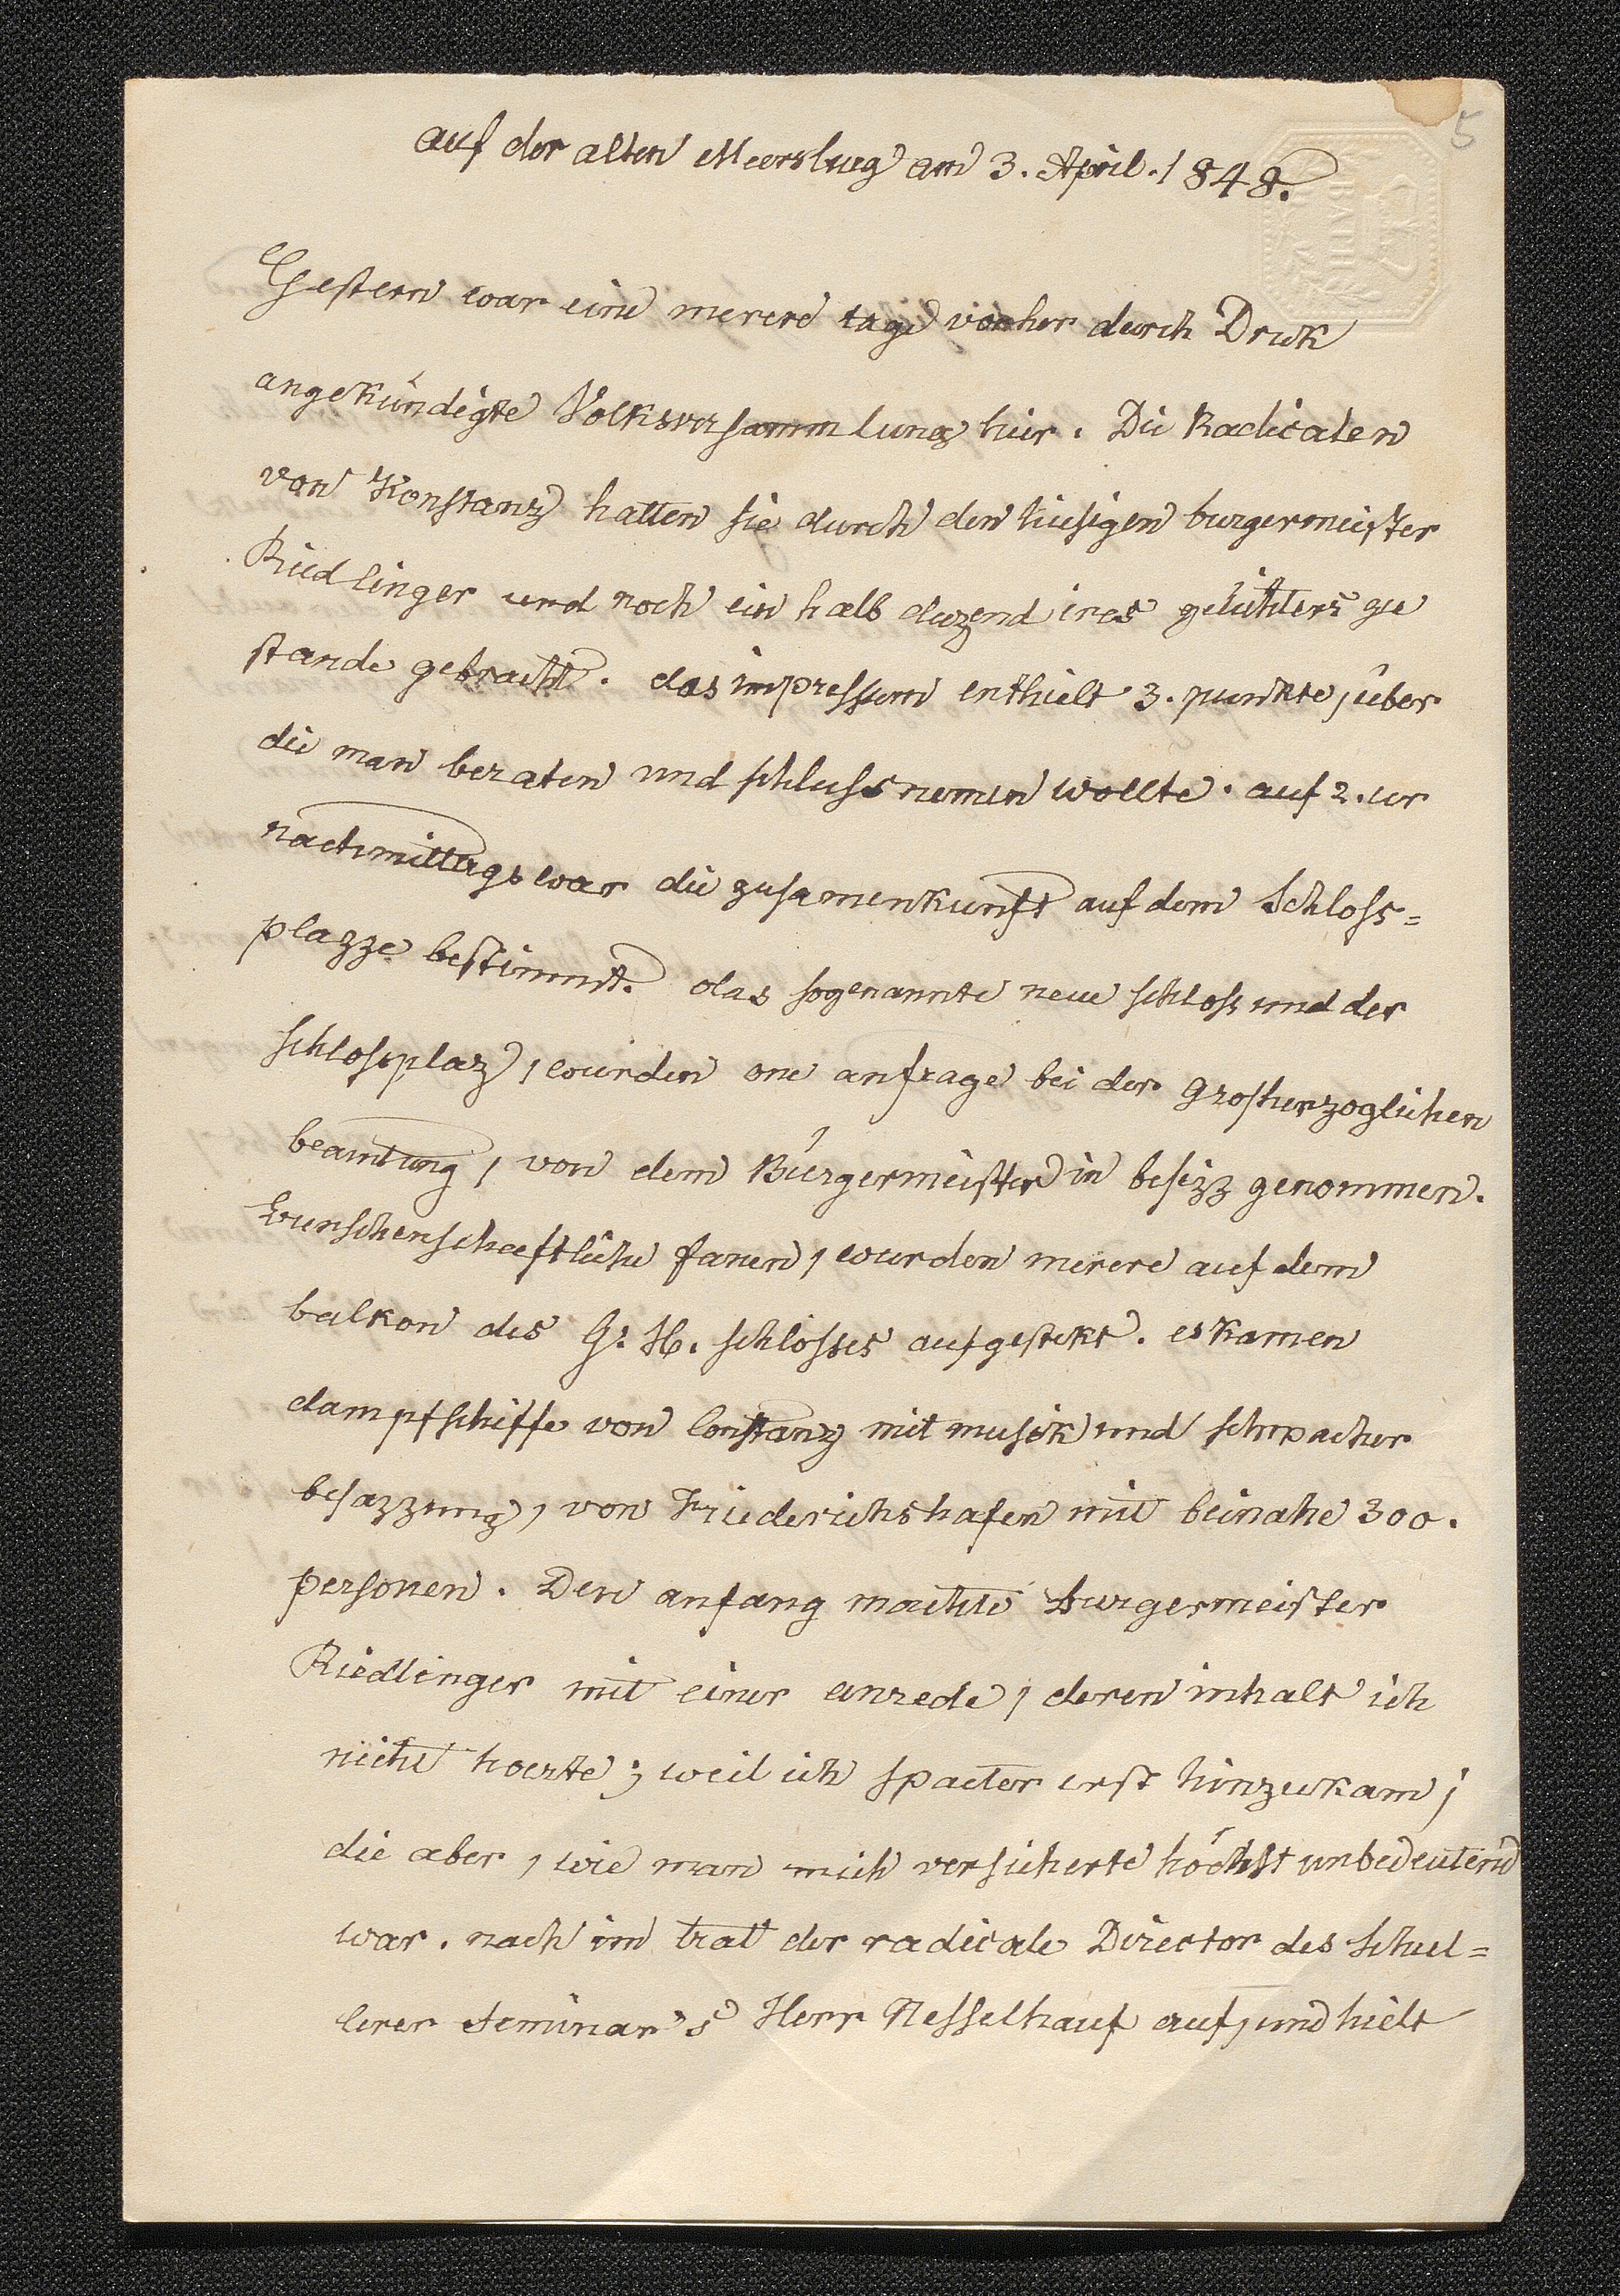 5
auf der alten Meersburg am 3. April. 1848.
BATH
Gestern war eine merere tage vorher durch Druk
angekündigte Volksversammlung hier. Die Radicalen
von Konstanz hatten sie durch den hiesigen burgermeister
Riedlinger und noch ein halb duzend ires gelichters zu
stande gebracht. das impressum enthielt 3. punkte, über
die man beraten und schluss nemen wollte. auf 2. ur
nachmittags war die zusamenkunft auf dem Schloss=
plazze bestimmt. das sogenannte neue schloss und der
schlossplaz, wurden one anfrage bei der Grosherzoglichen
beamtung, von dem Bürgermeister in besizz genommen.
burschenschaftliche fanen, wurden merere auf dem
balkon des G. H. schlosses aufgestekt. es kamen
dampfschiffe von Constanz mit musik und schwacher
besazzung, von Friederichshafen mit beinahe 300.
personen. Den anfang machte burgermeister
Riedlinger mit einer anrede, deren inhalt ich
nicht hoerte; weil ich spaeter erst hinzukam;
die aber, wie man mich versicherte höchst unbedeutend
war. nach im trat der radicale Director des Schul=
lerer Seminar's Herr Nesselhauf auf, und hielt